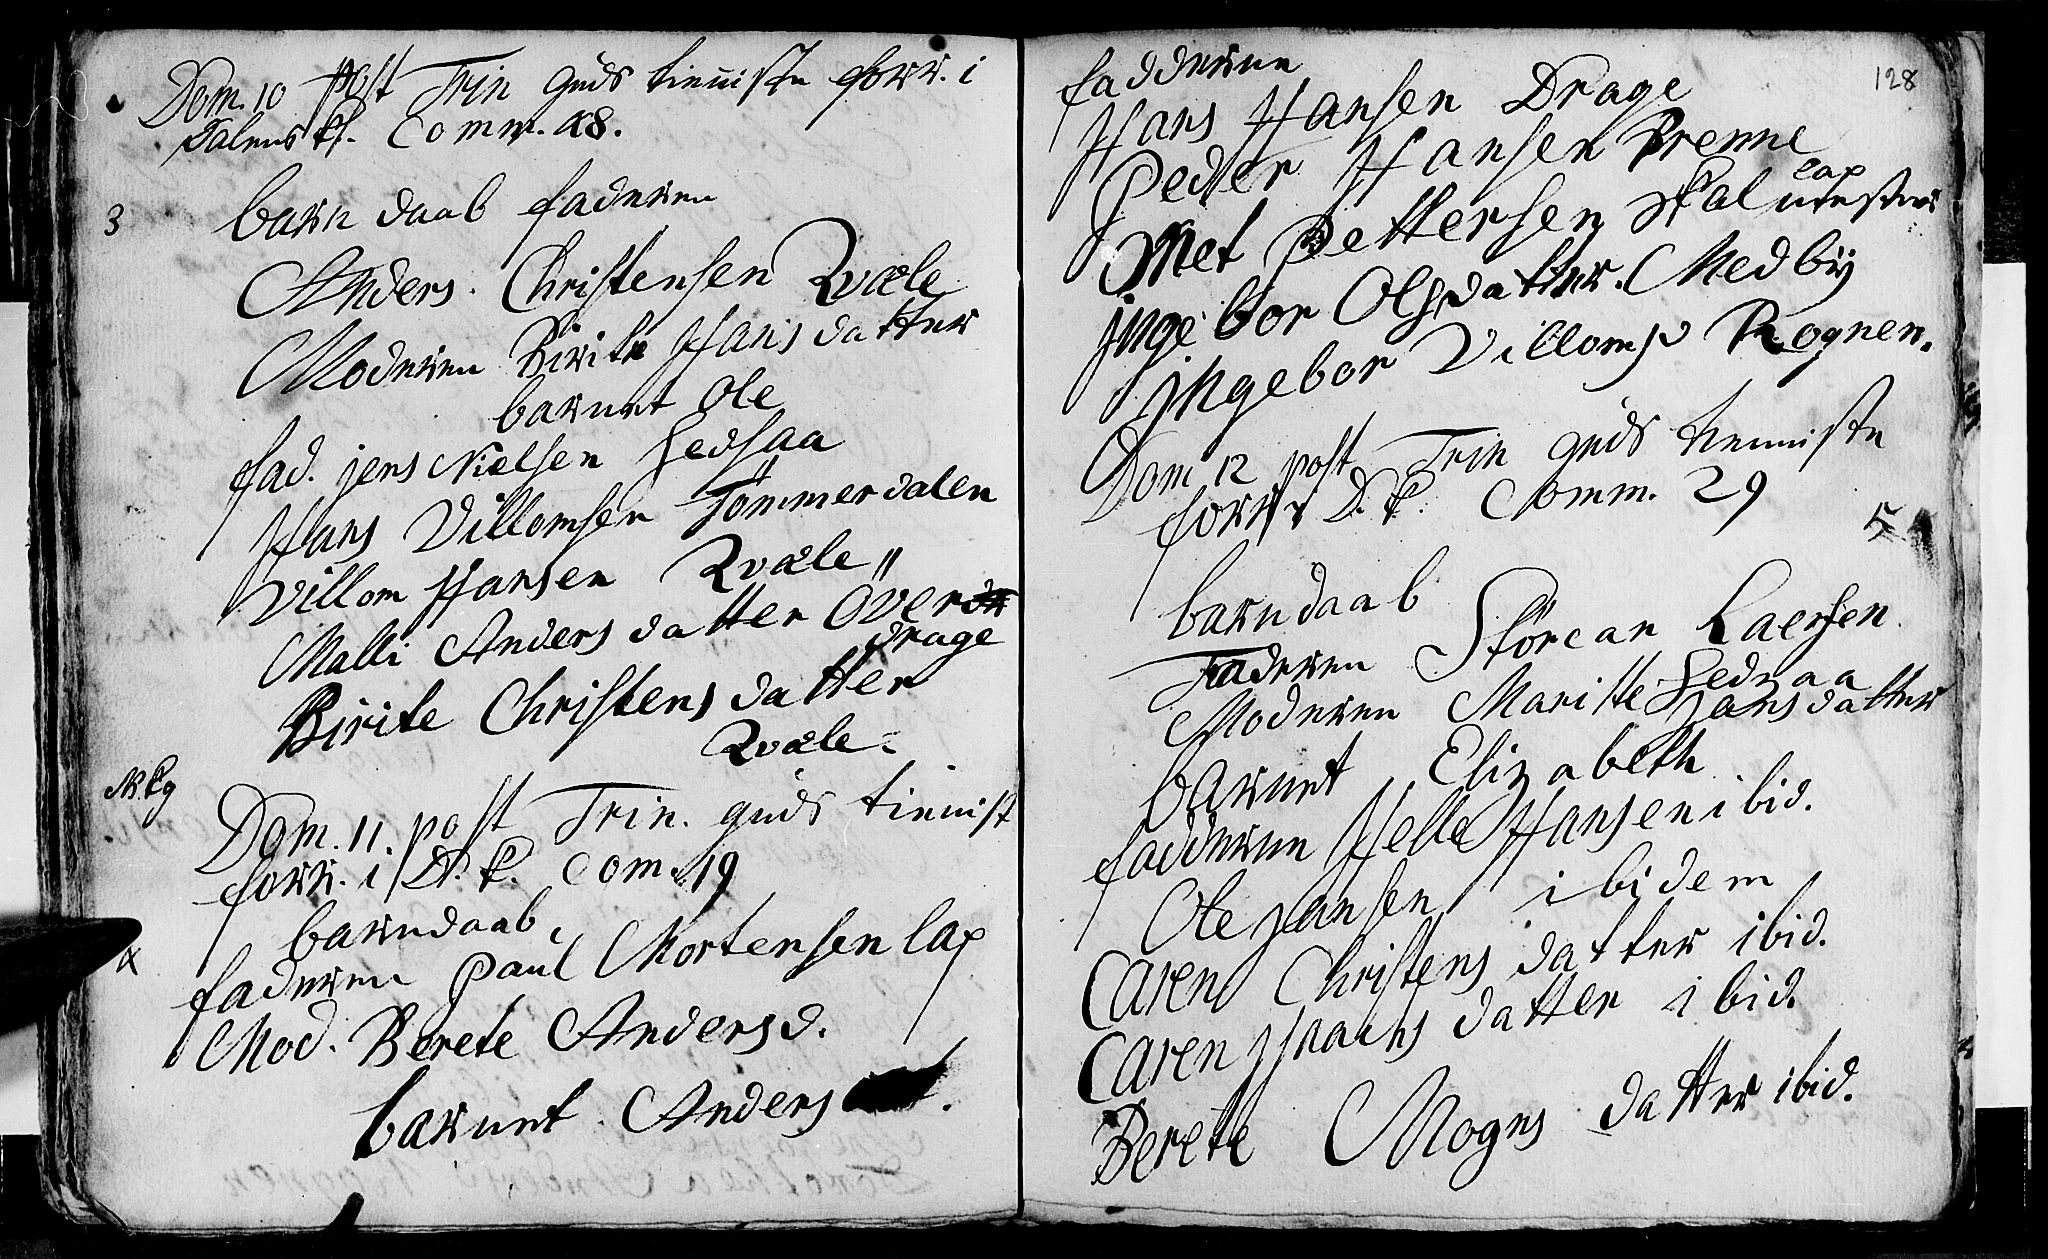 Dom. 10 post Trin guds tieniste forr. i
Dalens k. Comm. 48.
3
barn daab faderen
Anders Christensen Qvæle
Moderen Birite Hansdatter
barnet Ole
fad. jens Nielsen hedsaa
Hans Villomsen Tömmerdalen
Villom Hansen Qvæle
Malli Andersdatter Över
drage
Birite Christensdatter
Qvæle.
Dom. 11. post Trin. guds tienist
forr. i D. k. Com. 19
4
barndaab,
faderen Paul Mortensen lap
Mod. Berete Andersd.
barnet Anders
128
fadderne
Hans Hansen Drage
Peder Hansen Brenne
lap
Met Pettersen
jngebor Olsdatter. Medby
jngebor Villomsd Rognen.
Dom 12 post Trin guds tienniste
forr i D. k. Comm. 29
5
barndaab
Faderen Störcar Laersen
hednaa
Moderen Maritte Hansdatter
barnet Elizabeth
fadderne Helle Hansen ibid.
Ole Hansen ibidem
Caren Christensdatter ibid.
Caren Haansdatter ibid.
Berete Mognsdatter ibid.